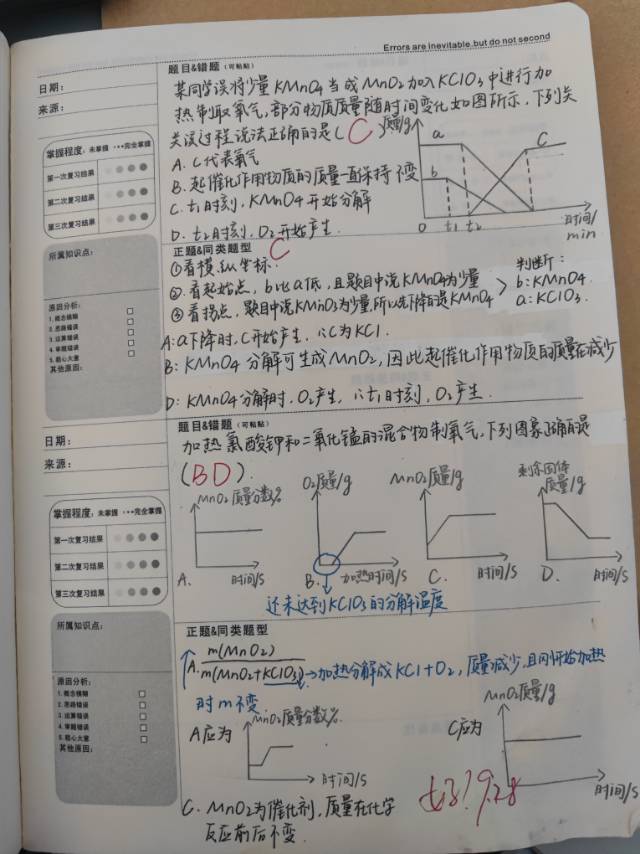 Errors are inevitable, but do not second
题目&错题（可粘贴）
日期：
来源：
某同学误将少量KMnO4当成MnO2加入KClO3中进行加
热制取氧气，部分物质质量随时间变化如图所示，下列关
关该过程说法正确的是（C）
A. C代表氧气
B. 起催化作用物质的质量一直保持不变
C. t1时刻，KMnO4开始分解
D. t2时刻，O2开始产生.
质量/g
a
b
c
0 t1 t2
时间/min
掌握程度：未掌握•••完全掌握
第一次复习结果
第二次复习结果
第三次复习结果
正题&同类题型
C
①看横.纵坐标.
②. 看起始点，b比a低，且题目中说KMnO4为少量
③看拐点，题目中说KMnO3为少量，所以先下降的是KMnO4
判断：
b：KMnO4.
a：KClO3.
A：a下降时，C开始产生，∴C为KCl.
B：KMnO4分解可生成MnO2，因此起催化作用物质的质量在减少
D：KMnO4分解时，O2产生，∴t1时刻，O2产生.
所属知识点：
原因分析：
1. 概念模糊
2. 思路错误
3. 运算错误
4. 审题错误
5. 粗心大意
其他原因：
题目&错题（可粘贴）
日期：
来源：
加热氯酸钾和二氧化锰的混合物制氧气，下列图象正确的是
（BD）.
MnO2质量分数/%
A.
时间/s
O2质量/g
B.
加热时间/s
MnO2质量/g
C.
时间/s
剩余固体
质量/g
D.
时间/s
还未达到KClO3的分解温度
掌握程度：未掌握•••完全掌握
第一次复习结果
第二次复习结果
第三次复习结果
正题&同类题型
A. m(MnO2)
m(MnO2+KClO3) →加热分解成KCl+O2，质量减少，且刚开始加热
时m不变
A应为
MnO2质量分数/%.
时间/s
C应为
MnO2质量/g
时间/s
C. MnO2为催化剂，质量在化学
反应前后不变.
9.28
所属知识点：
原因分析：
1. 概念模糊
2. 思路错误
3. 运算错误
4. 审题错误
5. 粗心大意
其他原因：